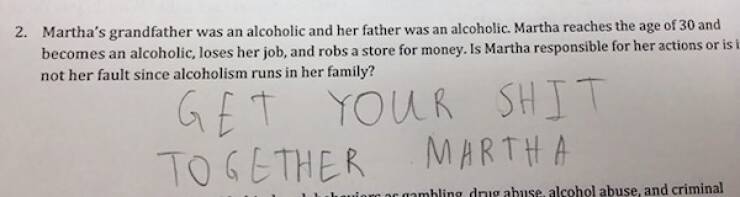 2. Martha's grandfather was an alcoholic and her father was an alcoholic. Martha reaches the age of 30 and
becomes an alcoholic, loses her job, and robs a store for money. Is Martha responsible for her actions or is
not her fault since alcoholism runs in her family?
GET YOUR SHIT
TOGETHER MARTHA
or gambling, drug abuse, alcohol abuse, and criminal